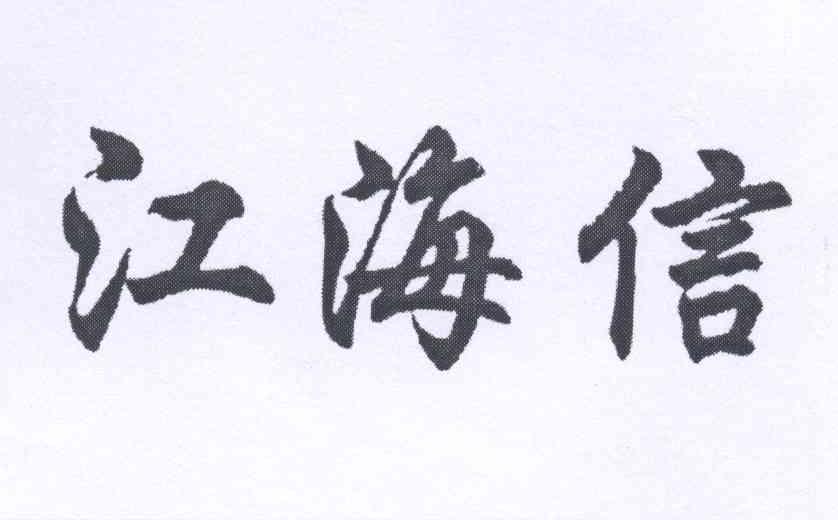 江海信